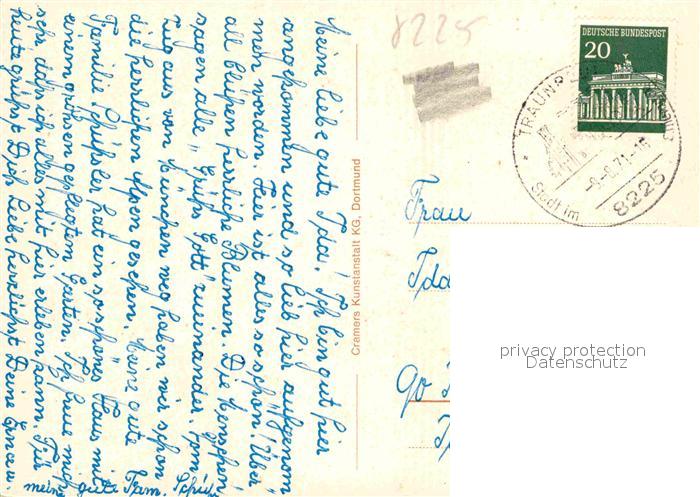 8225
Meine liebe gute Ida! Ich bin gut hier
angekommen und so lieb hier aufgenom
men worden. Hier ist alles so schön! Über
all blühen herrliche Blumen. Die Menschen
sagen alle "Grüß Gott" zueinander. Vom
Zug aus von München weg haben wir schon
die herrlichen Alpen gesehen. Meine gute
Familie Schüßler hat ein so schönes Haus mit
einem großen gepflegten Garten. Ich freue mich
sehr, daß ich alles mit hier erleben kann. Für
heute grüßt Dich liebe herzlichst Deine
meine gute Fam.
Cramers Kunstanstalt KG, Dortmund
DEUTSCHE BUNDESPOST
20
TRAUNR
Stadt im
8225
Frau
Ida
privacy protection
Datenschutz